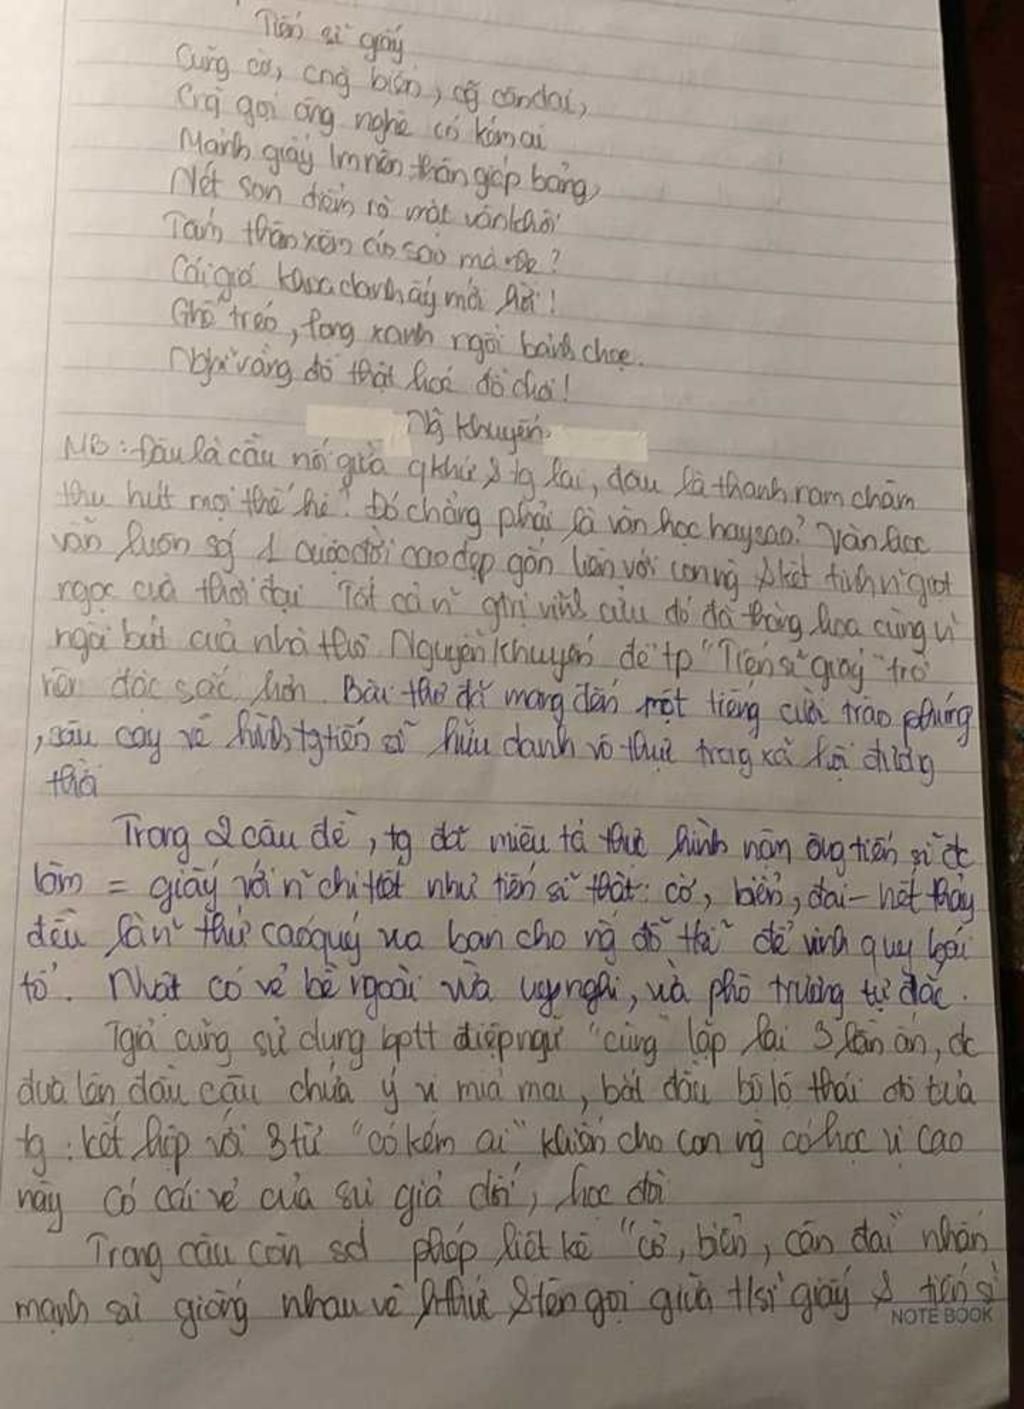 Tiến sĩ giấy
Cũng cờ, cng biển, cg cân đai,
Cng gọi ông nghè có kém ai
Mảnh giấy lm nên thân giáp bảng,
Nét son điểm rõ mặt văn khôi
Tấm thân xiêm áo sao mà nhẹ?
Cái giá khoa danh ấy mới hời!
Ghế tréo, lọng xanh ngồi bảnh choẹ.
Nghĩ rằng đồ thật hoá đồ chơi!
Ng Khuyến
MB: Đâu là cầu nối giữa q khứ & tg lai, đâu là thanh nam châm
thu hút mọi thế hệ? Đó chẳng phải là văn học hay sao? Văn học
vẫn luôn số 1 cuộc đời cao đẹp gắn liền với con ng & kết tinh n~ giọt
ngọc của thời đại Tất cả n~ gtrị vĩnh cửu đó đã thăng hoa cùng
ngòi bút của nhà thơ Nguyễn Khuyến để tp "Tiến sĩ giấy" trở
nên đặc sắc hơn. Bài thơ đã mang đến một tiếng cười trào phúng
, sâu cay về hình tg tiến sĩ hữu danh vô thực trong xã hội đương
thời
Trong 2 câu đề, tg đã miêu tả thực hình nộm ông tiến sĩ đc
làm = giấy với n~ chi tiết như tiến sĩ thật: cờ, biển, đai - hết thảy
đều là n~ thứ cao quý vua ban cho ng đỗ thi~ để vinh quy bái
tổ. Nhật có vẻ bề ngoài vừa uy nghi, và phô trương tự đắc.
Tgiả cũng sử dụng bptt điệp ngữ "cũng" lặp lại 3 lần ấn, đc
đưa lên đầu câu chứa ý vị mỉa mai, bắt đầu bộ lộ thái độ của
tg: kết hợp với 3 từ "có kém ai" khiến cho con ng có học vị cao
này có cái vẻ của sự giả dối, học đòi
Trong câu còn sd phép liệt kê "cờ, biển, cân đai" nhấn
mạnh sự giống nhau về h thức & tên gọi giữa t/sĩ giấy & tiến sĩ
NOTE BOOK